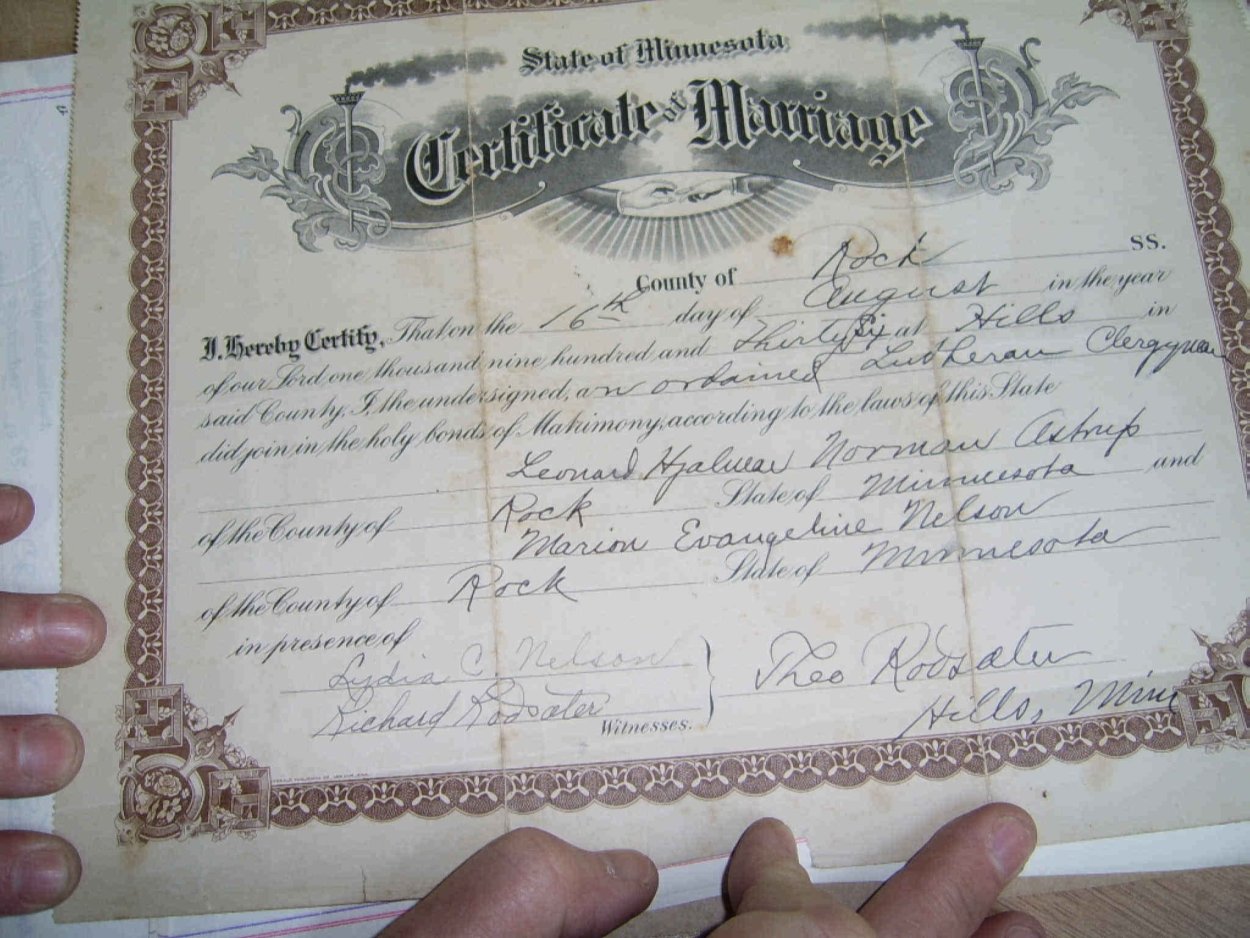 State of Minnesota
Certificate of Marriage
County of Rock SS.
I Hereby Certify, That on the 16th day of August in the year
of our Lord one thousand nine hundred and Thirty Six at Hills in
said County, I, the undersigned, an ordained Lutheran Clergyman
did join in the holy bonds of Matrimony, according to the laws of this State
Leonard Hjalmar Norman Astrup
of the County of Rock State of Minnesota and
Marion Evangeline Nelson
of the County of Rock State of Minnesota
in presence of
Lydia C Nelson
Richard Rodsater
Witnesses.
Theo Rodsater
Hills, Minn